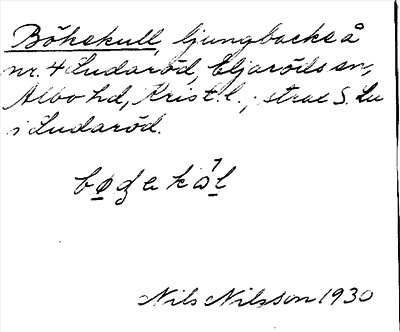 Bökskull, ljungbacke å
nr. 4 Ludaröd, Eljaröds sn,
Albo hd, Krist. l.; strax S. Lu
i Ludaröd.
Nils Nilsson 1930